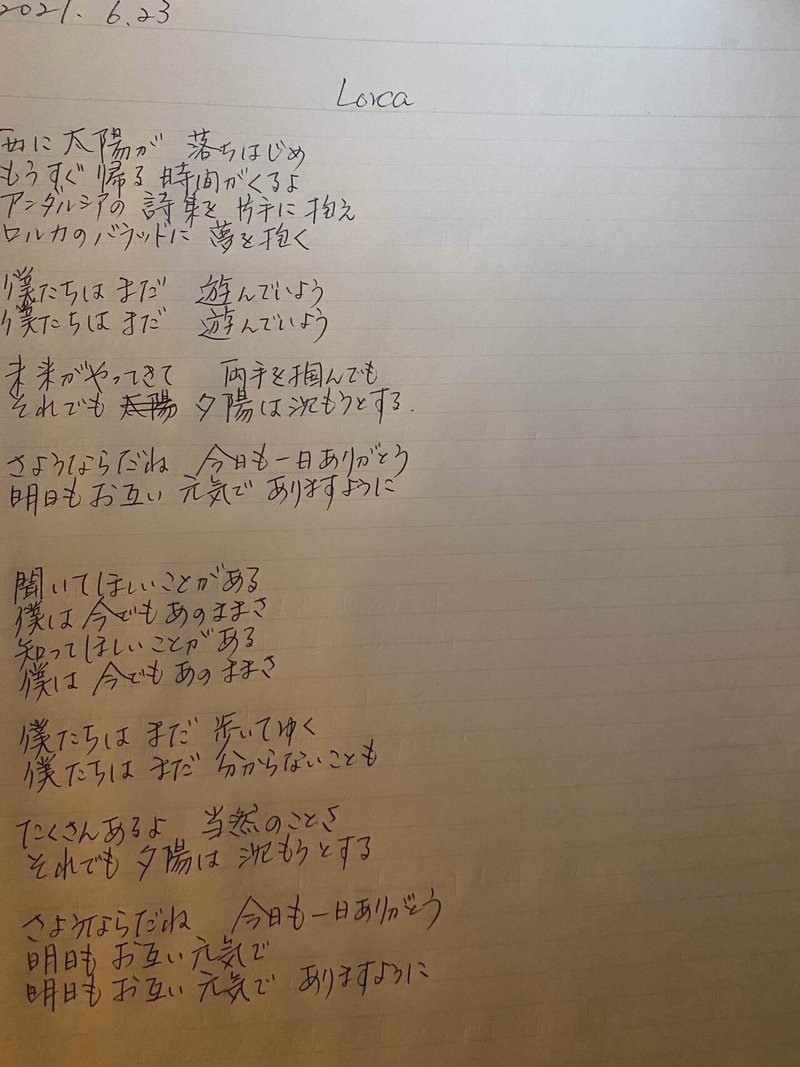 2021. 6.23
Lorca
西に太陽が 落ちはじめ
もうすぐ帰る時間がくるよ
アンダルシアの 詩集を 片手に 抱え
ロルカのバラッドに 夢を抱く
僕たちは まだ 遊んでいよう
僕たちは まだ 遊んでいよう
未来がやってきて 両手を掴んでも
それでも 太陽 夕陽は沈もうとする.
さようならだね 今日も一日ありがとう
明日も お互い 元気で ありますように
聞いてほしいことがある
僕は 今でもあのままさ
知ってほしいことがある
僕は 今でも あの ままさ
僕たちは まだ 歩いてゆく
僕たちは まだ 分からないことも
たくさんあるよ 当然のことさ
それでも 夕陽は 沈もうとする
さようならだね 今日も一日ありがとう
明日も お互い 元気で
明日も お互い 元気で ありますように